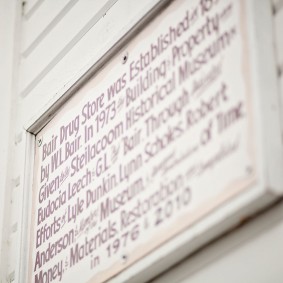 Bair Drug Store was Established in 18
by W.L. Bair. In 1973 the Building & Property
Given the Steilacoom Historical Museum
Eudocia Leech & G.L. Bair Through the
Efforts of Lyle Dunkin, Lynn Scholes, Robert
Anderson & Museum.
Money & Materials. Restoration
in 1976 & 2010
of Time